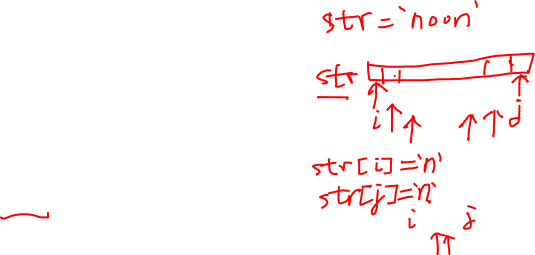 str='noon'
str
i j
str[i]='n'
str[j]='n'
i j